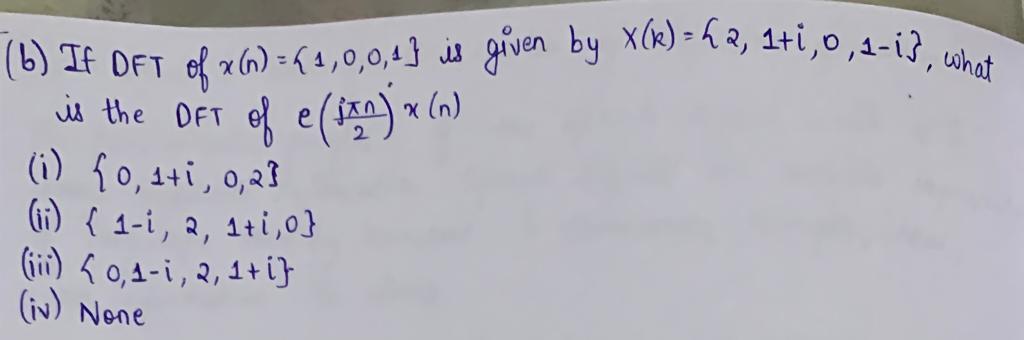 (b) If DFT of x(n) = {1,0,0,1} is given by X(k) = {2, 1+i, 0, 1-i}, what
is the DFT of e(jπn/2) x(n)
(i) {0, 1+i, 0, 2}
(ii) {1-i, 2, 1+i, 0}
(iii) {0, 1-i, 2, 1+i}
(iv) None